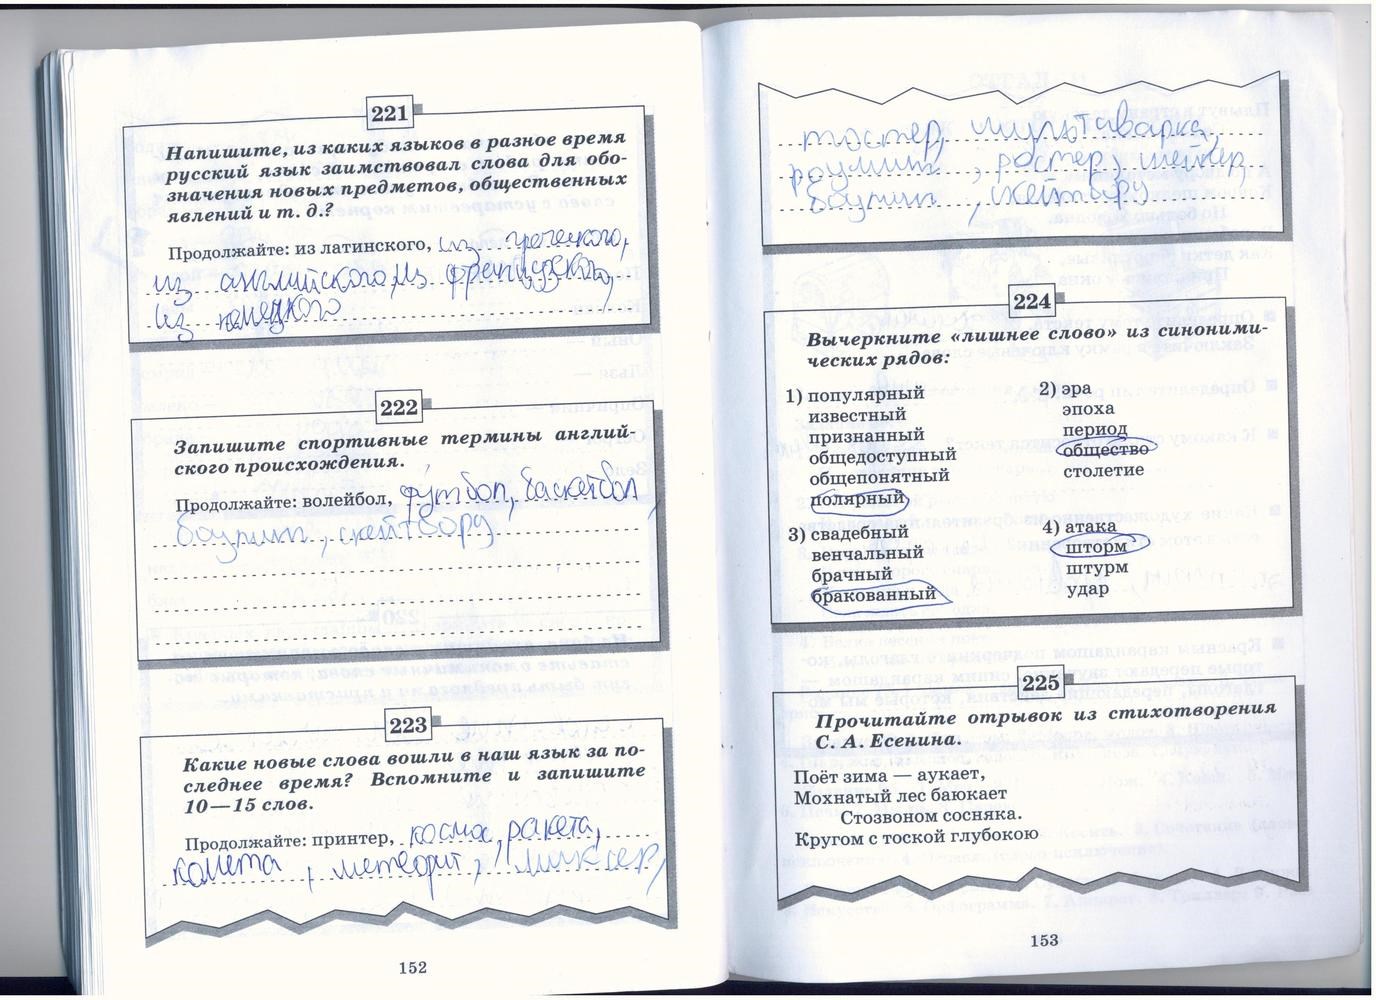 221
Напишите, из каких языков в разное время
русский язык заимствовал слова для обо-
значения новых предметов, общественных
явлений и т. д.?
Продолжайте: из латинского, из греческого,
из английского, из французского,
из немецкого
222
Запишите спортивные термины англий-
ского происхождения.
Продолжайте: волейбол, футбол, баскетбол,
боулинг, скейтборд.
223
Какие новые слова вошли в наш язык за по-
следнее время? Вспомните и запишите
10—15 слов.
Продолжайте: принтер, космос, ракета,
комета, метеорит, миксер,
152
тостер, мультиварка,
роуминг, ростер, шейкер,
боулинг, скейтборд
224
Вычеркните «лишнее слово» из синоними-
ческих рядов:
1) популярный
известный
признанный
общедоступный
общепонятный
полярный
2) эра
эпоха
период
общество
столетие
3) свадебный
венчальный
брачный
бракованный
4) атака
шторм
штурм
удар
225
Прочитайте отрывок из стихотворения
С. А. Есенина.
Поёт зима — аукает,
Мохнатый лес баюкает
Стозвоном сосняка.
Кругом с тоской глубокою
153